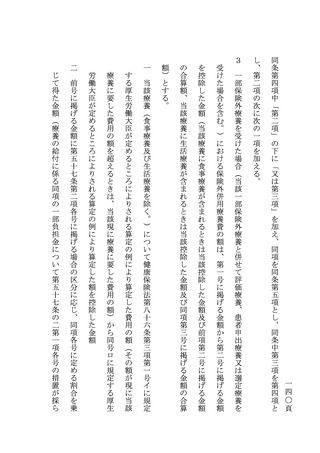 一四〇頁
同条第四項中「第二項」の下に「又は第三項」を加え、同項を同条第五項とし、同条中第三項を第四項と
し、第二項の次に次の一項を加える。
３　一部保険外療養を受けた場合（当該一部保険外療養と併せて評価療養、患者申出療養又は選定療養を
受けた場合を含む。）における保険外併用療養費の額は、第一号に掲げる金額から第二号に掲げる金額
を控除した金額（当該療養に食事療養が含まれるときは当該控除した金額及び前項第二号に掲げる金額
の合算額、当該療養に生活療養が含まれるときは当該控除した金額及び同項第三号に掲げる金額の合算
額）とする。
一　当該療養（食事療養及び生活療養を除く。）について健康保険法第八十六条第三項第一号イに規定
する厚生労働大臣が定めるところによりされる算定の例により算定した費用の額（その額が現に当該
療養に要した費用の額を超えるときは、当該現に療養に要した費用の額）から同号ロに規定する厚生
労働大臣が定めるところによりされる算定の例により算定した額を控除した金額
二　前号に掲げる金額に第五十七条第二項各号に掲げる場合の区分に応じ、同項各号に定める割合を乗
じて得た金額（療養の給付に係る同項の一部負担金について第五十七条の二第一項各号の措置が採ら